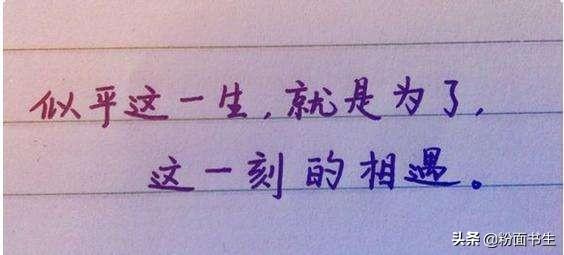 似乎这一生,就是为了,
这一刻的相遇。
头条 @粉面书生